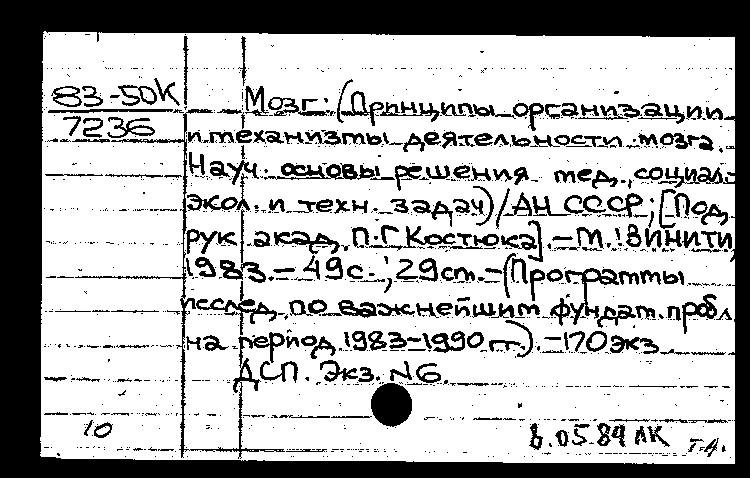 83-50К
7236
Мозг: (Принципы организации
и механизмы деятельности мозга.
Науч. основы решения мед., социал.-
экол. и техн. задач) / АН СССР; [Под.
рук. акад. П.Г. Костюка]. - М.: ВИНИТИ,
1983. - 49с.; 29см. - (Программы
исслед. по важнейшим фундам. пробл.
на период 1983-1990 гг.). - 170 экз.
ДСП. Экз. N6.
10
8.05.84 ЛК т.А.